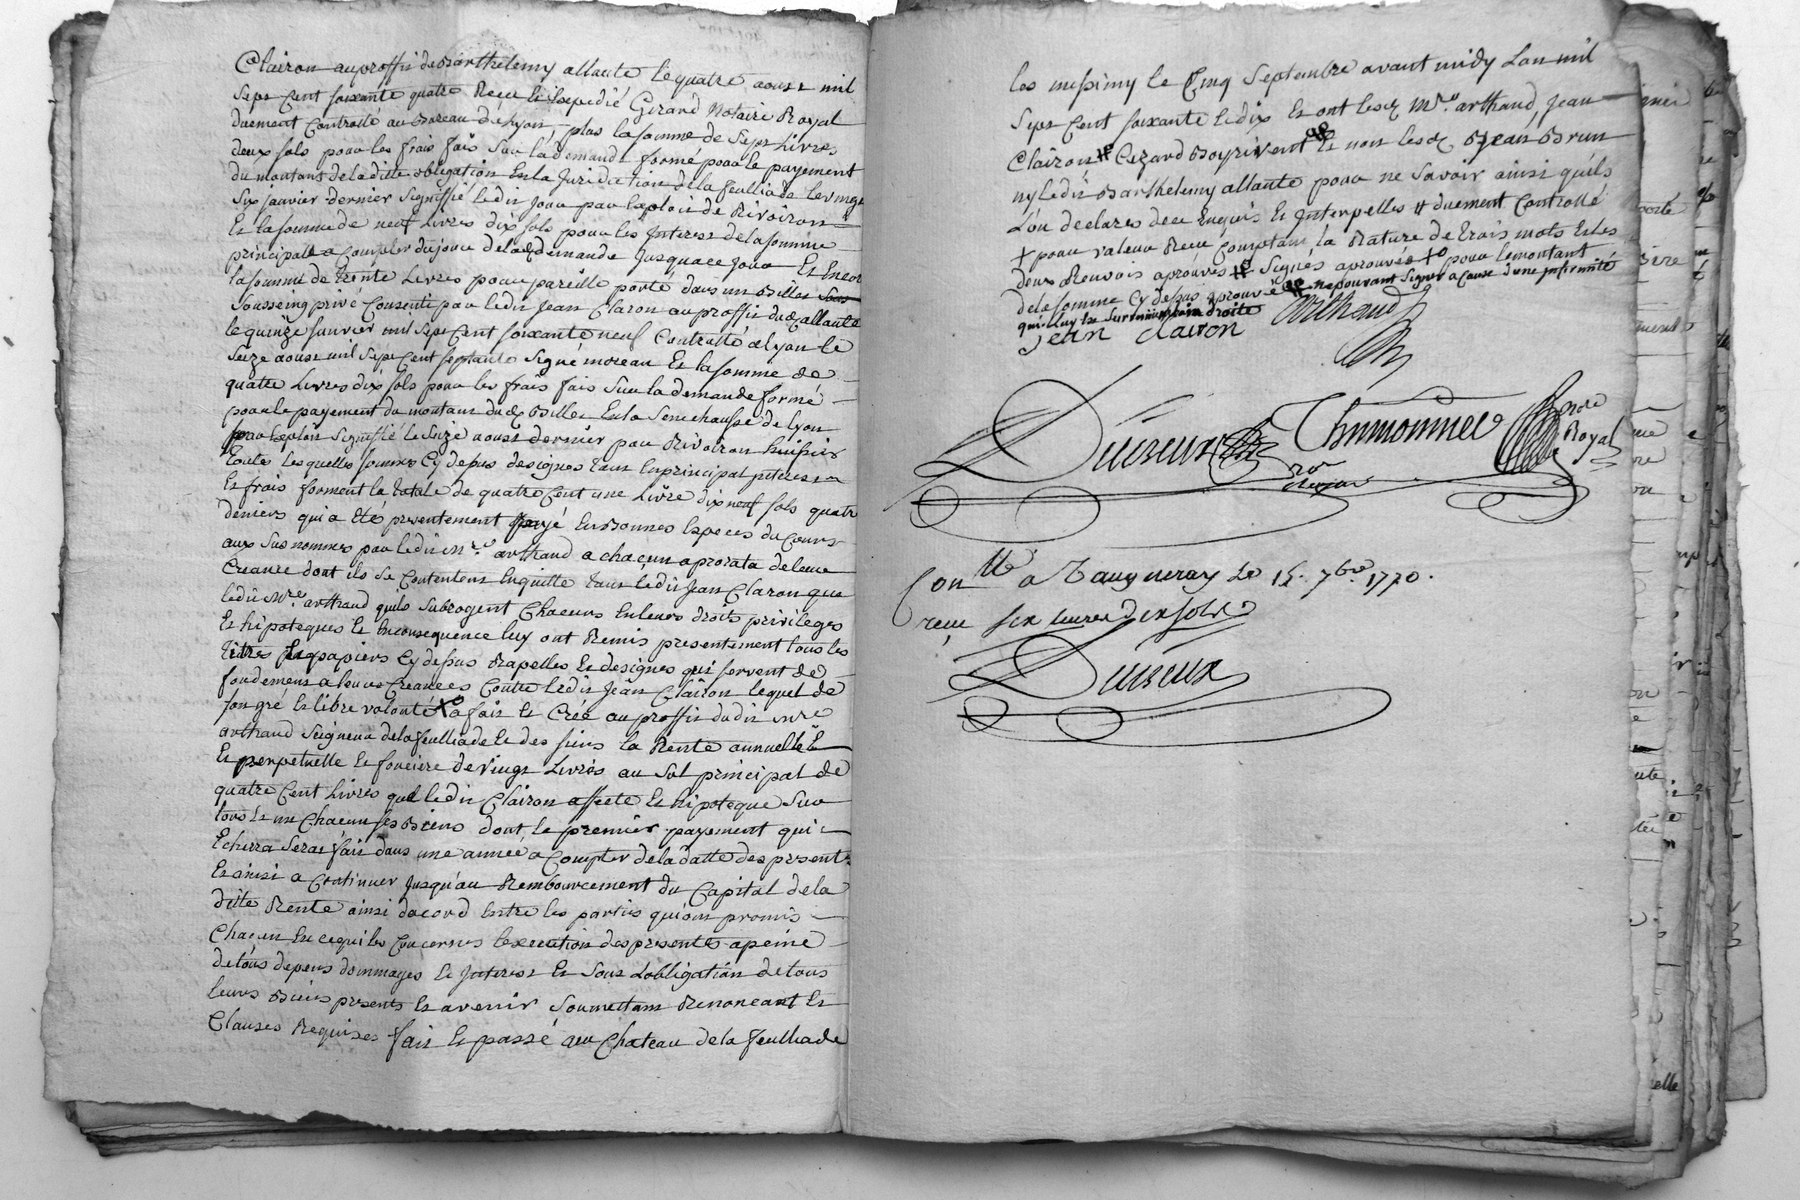 Clairon au proffit de Barthelemy allante le quatre aoust mil
Sept Cent soixante quatre Receu et Expedié Girard Notaire Royal
duement Controllé au Bureau de Lyon, plus la somme de Sept Livres
deux sols pour les frais fais Sur la demande formé pour le payement
du montant de la ditte obligation En la Juridiction de la feulliade le vingt
Six janvier dernier signiffié le dit jour par Exploit de Rivoiron
Et la somme de neuf Livres dix sols pour les Interest de la somme
principalle a Compter du jour de la de demande Jusqua ce jour Et Encor
la somme de trente Livres pour pareille porté dans un Billet Sous
Sousseing privé Consenti par le dit Jean Claron au proffit du dt allante
le quinze Janvier mil Sept Cent soixante neuf Controllé a Lyon le
Seize aoust mil Sept Cent septante Signé moreau Et la somme de
quatre Livres dix sols pour les frais fais Sur la demande formé
pour le payement du montant du dt Billet En la Senechaussé de Lyon
par Exploit Signiffié le Seize aoust dernier par Rivoiron huissier
toutes lesquelles sommes Cy dessus designés tant En principal interest
Et frais forment la totale de quatre Cent une Livre dix neuf sols quatre
deniers qui a Eté presentement payé En Bonnes Especes du Cours
aux Sus nommés par le dit mre arthaud a chacun aprorata de leur
Creance dont ils se Contentent En quitte tant le dit Jean Claron que
le dit mre arthaud quils Subrogent Chacuns En leurs droits privileges
Et hipoteques Et En Consequence luy ont Remis presentement tous les
titres Et papiers Cy dessus Rapelles Et designes qui servent de
fondement a leurs Creances Contre le dit Jean Clairon lequel de
son gré Et libre volonté X a fait Et Créé au proffit du dit mre
arthaud Seigneur de la feulliade Et des siens la Rente annuelle
Et perpetuelle Et fonciere de vingt Livres au Sol principal de
quatre Cent Livres que le dit Clairon affecte Et hipoteque Sur
tous Et un Chacun ses Biens dont le premier payement qui
Echerra Seras fait dans une année a Compter de la datte des present
Et ainsi a Continuer Jusqu'au Remboursement du Capital de la
ditte Rente ainsi dacord Entre les parties qui ont promis
Chacun En ce qui les Concernes lexecution des presente apeine
de tous depens dommages Et Interest Et Sous Lobligation de tous
leurs Biens presents Et avenir Soumettant Renonceant Et
Clauses Requises fait Et passé au Chateau de la feulliade
les messimy le Cinq Septembre avant midy Lan mil
Sept Cent soixante Et dix Et ont les dt mre arthaud, Jean
Clairon # Cezard Boyrivent Et non les dt Jean Brun
ny le dit Barthelemy allante pour ne Savoir ainsi quils
L'on declares de ce Enquis Et Interpelles # duement Controllé
+ pour valeur Receu Comptant, la Rature de trois mots Et les
deux Renvois aprouvés # Signés aprouvés + pour le montant
de la somme Cy dessus aprouvé # ne pouvant Signer a cause d'une infirmité
qui luy Est Survenu main droite
jean clairon Arthaud
Ducreux Thimonnier Nore
Royal
Con lle a Vaugneray Le 15. 7bre. 1770.
reçu six livres dix sols
Ducreux